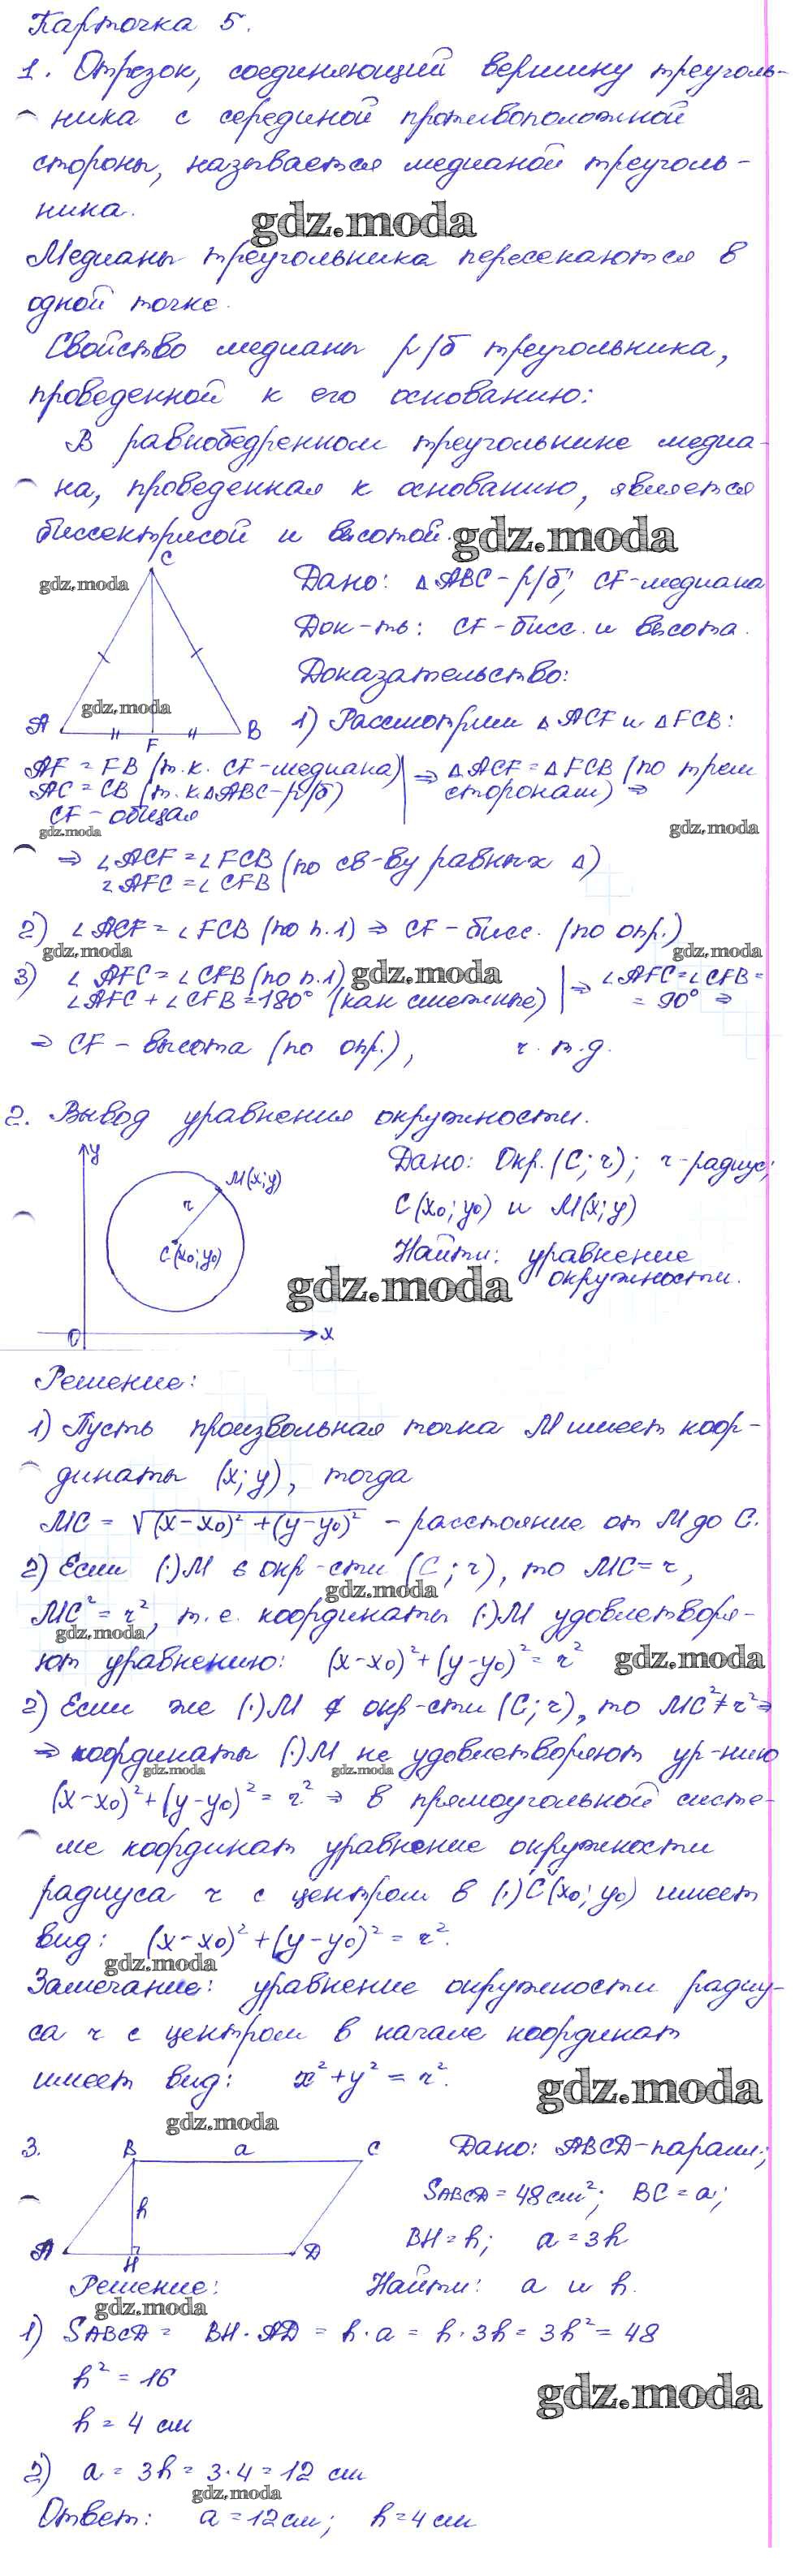 Карточка 5.
1. Отрезок, соединяющий вершину треуголь-
ника с серединой противоположной
стороны, называется медианой треуголь-
ника.
gdz.moda
Медианы треугольника пересекаются в
одной точке.
Свойство медианы р/б треугольника,
проведенной к его основанию:
В равнобедренном треугольнике медиа-
на, проведенная к основанию, является
биссектрисой и высотой.
gdz.moda
C
gdz.moda
Дано: △ABC - р/б; CF - медиана
Док-ть: CF - бисс. и высота.
Доказательство:
gdz.moda
A F B
1) Рассмотрим △ACF и △FCB:
AF = FB (т.к. CF - медиана)
AC = CB (т.к. △ABC - р/б)
CF - общая
⇒ △ACF = △FCB (по трем
сторонам) ⇒
gdz.moda
gdz.moda
⇒ ∠ACF = ∠FCB (по св-ву равных △)
∠AFC = ∠CFB
2) ∠ACF = ∠FCB (по п.1) ⇒ CF - бисс. (по опр.)
gdz.moda
gdz.moda
3) ∠AFC = ∠CFB (по п.1)
gdz.moda
∠AFC + ∠CFB = 180° (как смежные)
⇒ ∠AFC = ∠CFB =
= 90° ⇒
⇒ CF - высота (по опр.), ч.т.д.
2. Вывод уравнения окружности.
y
M(x;y)
r
C(x₀;y₀)
O x
Дано: Окр.(C;r); r - радиус;
C(x₀;y₀) и M(x;y)
Найти: уравнение
окружности.
gdz.moda
Решение:
1) Пусть произвольная точка M имеет коор-
динаты (x;y), тогда
MC = √(x-x₀)² + (y-y₀)² - расстояние от M до C.
2) Если (·)M ∈ окр-сти (C;r), то MC = r,
gdz.moda
MC² = r², т.е. координаты (·)M удовлетворя-
gdz.moda
ют уравнению: (x-x₀)² + (y-y₀)² = r²
gdz.moda
2) Если же (·)M ∉ окр-сти (C;r), то MC² ≠ r² ⇒
⇒ координаты (·)M не удовлетворяют ур-нию
gdz.moda
gdz.moda
(x-x₀)² + (y-y₀)² = r² ⇒ в прямоугольной систе-
ме координат уравнение окружности
радиуса r с центром в (·)C(x₀;y₀) имеет
вид: (x-x₀)² + (y-y₀)² = r².
gdz.moda
Замечание: уравнение окружности радиу-
са r с центром в начале координат
имеет вид: x² + y² = r².
gdz.moda
gdz.moda
3.
B a C
h
A H D
Дано: ABCD - паралл;
SABCD = 48 см²; BC = a;
BH = h; a = 3h
Решение: Найти: a и h.
gdz.moda
1) SABCD = BH · AD = h · a = h · 3h = 3h² = 48
h² = 16
gdz.moda
h = 4 см
2) a = 3h = 3·4 = 12 см
gdz.moda
Ответ: a = 12 см; h = 4 см